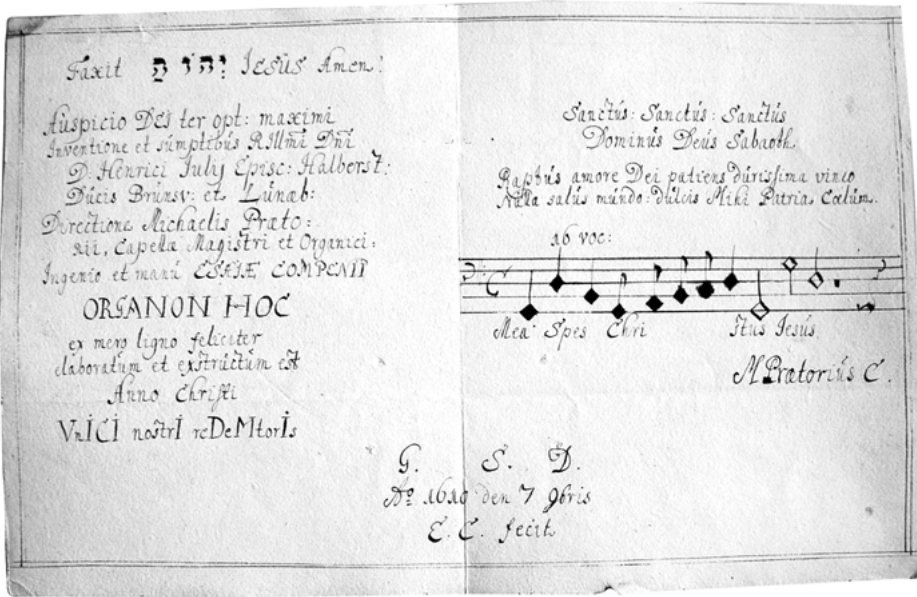 Faxit יְהֹוָה IESUS Amen!
Auspicio DEI ter opt: maximi
Inventione et sumptibus R Illmi Dni
D. Henrici Iulij Episc: Halberst:
Ducis Brunsv: et Lunæb:
Directione Michaelis Præto:
rii, Capellæ Magistri et Organici:
Ingenio et manu ESAIÆ COMPENII
ORGANON HOC
ex mero ligno feliciter
elaboratum et exstructum est
Anno Christi
VnICI nostrI reDeMtorIs
Sanctus: Sanctus: Sanctus
Dominus Deus Sabaoth.
Raptus amore Dei patiens durissima vinco
Nulla salus mundo: dulcis Mihi Patria Cœlum.
16 voc:
Mea Spes Chri stus Iesus
M Prætorius C.
G. S. D.
Aº 1610 den 7 9bris
E. C. fecit